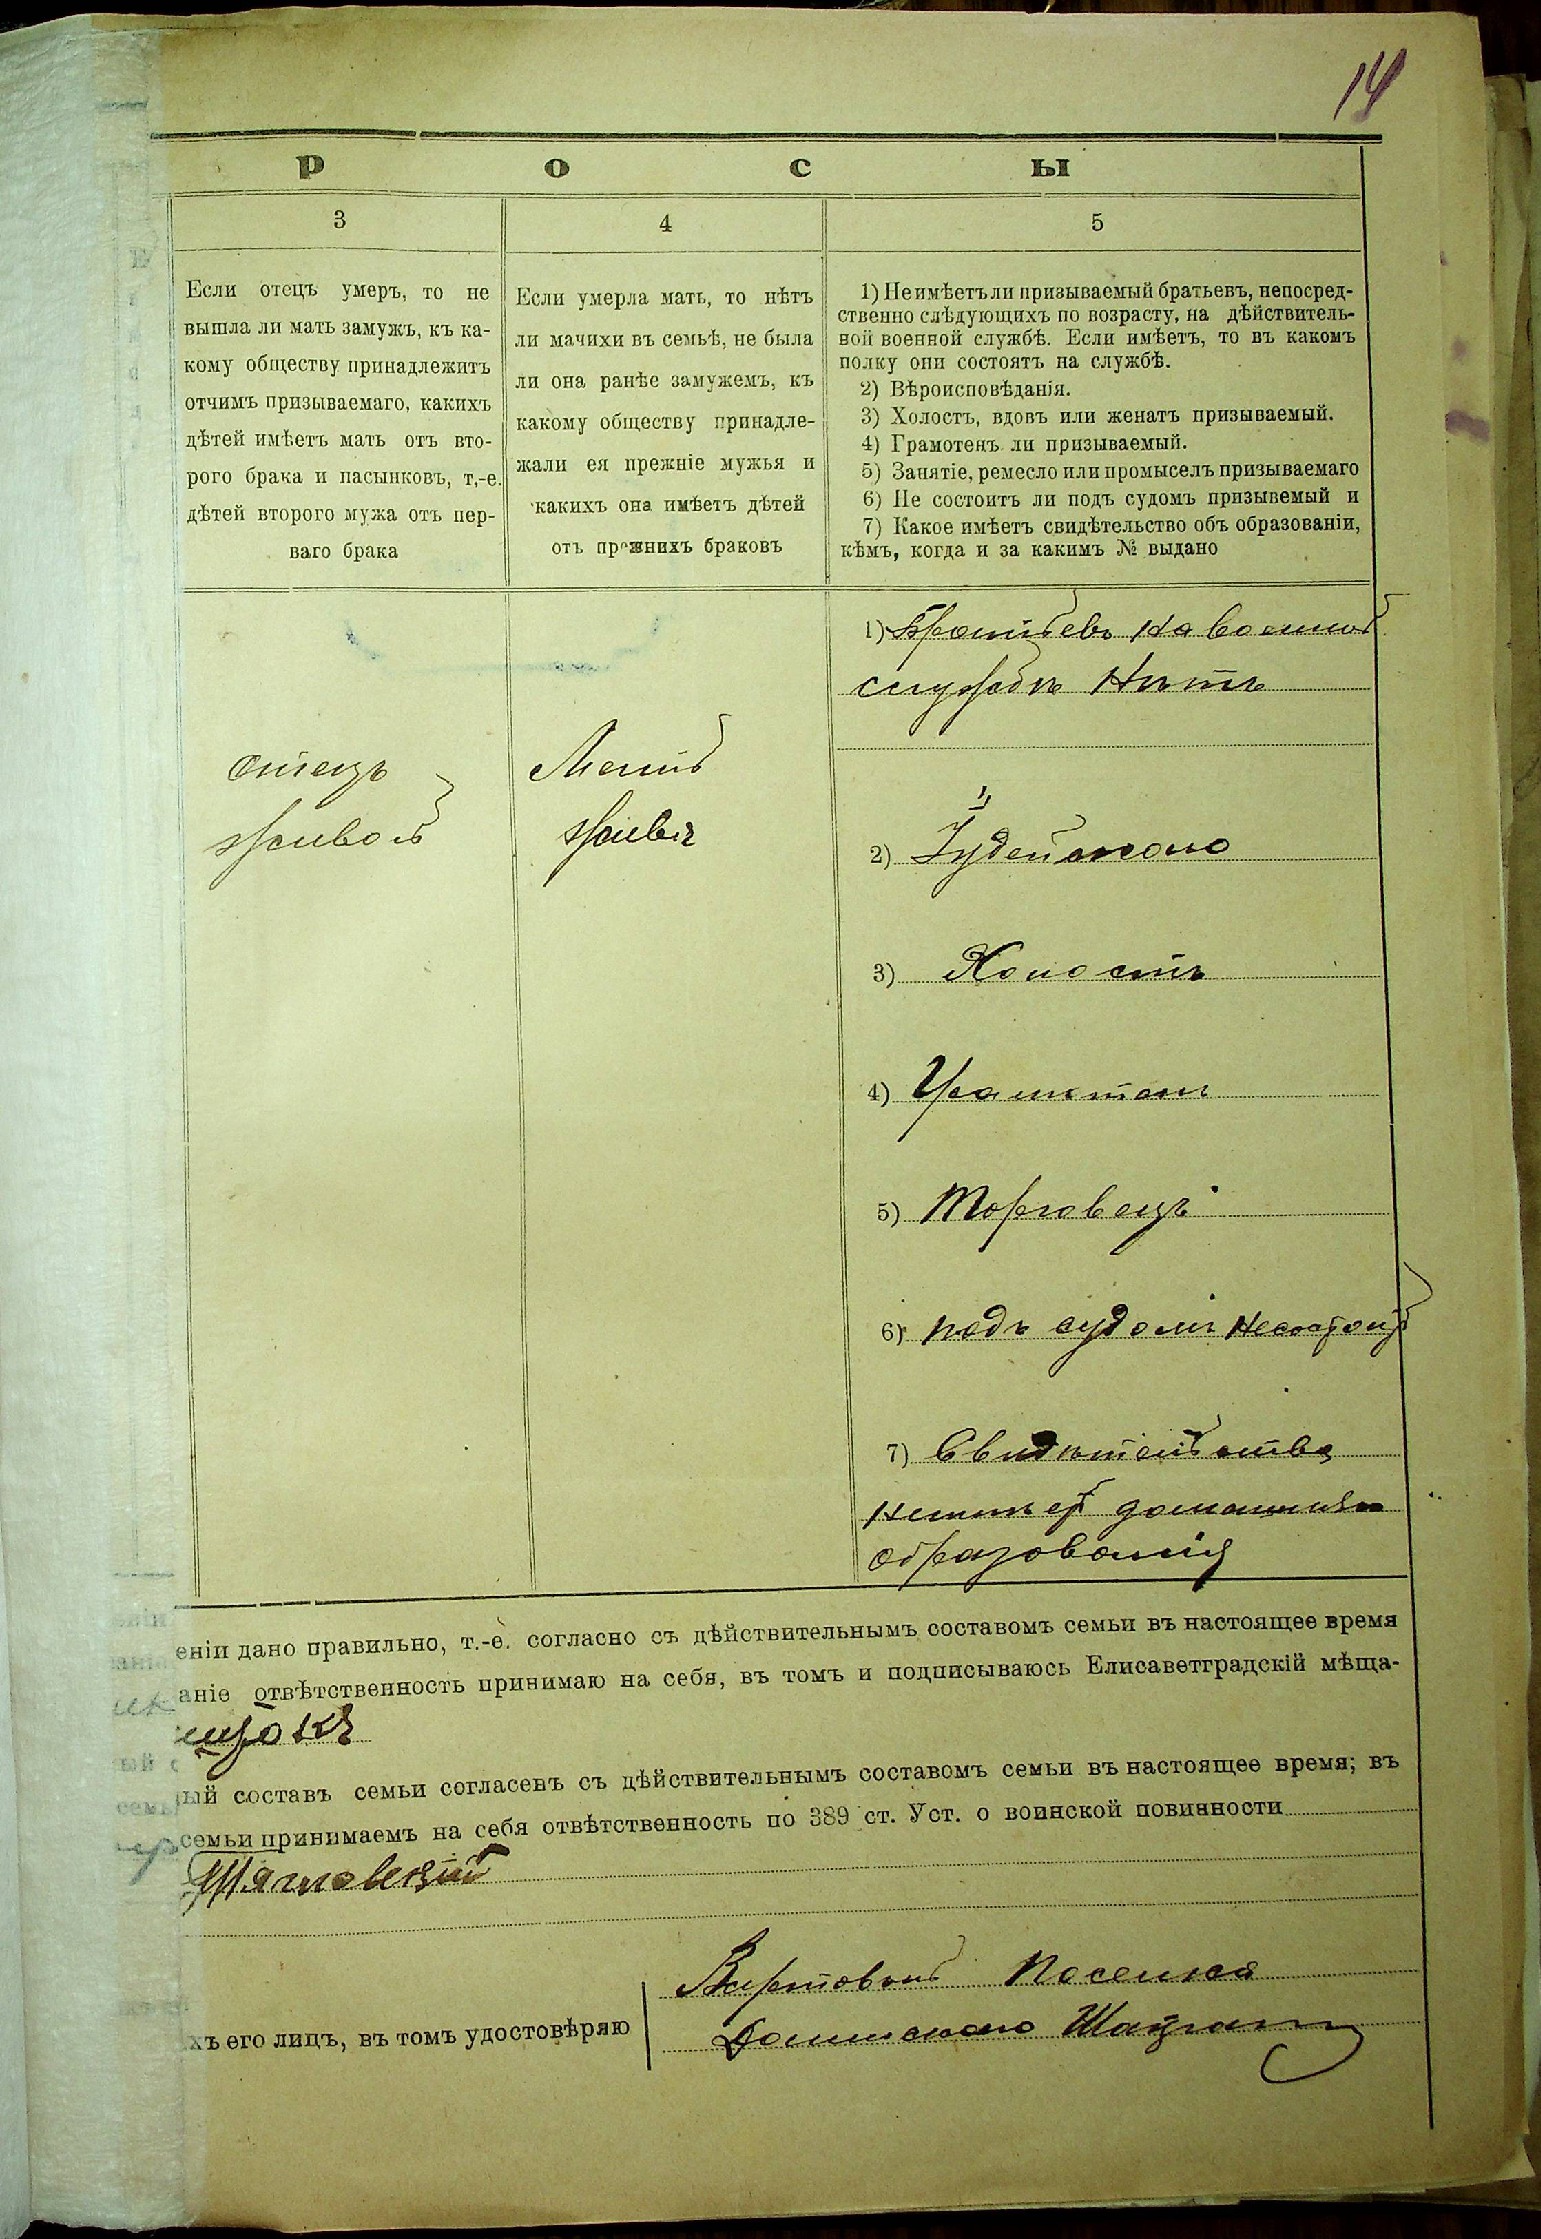 14
р о с ы
3
4
5
Если отецъ умеръ, то не
вышла ли мать замужъ, къ ка-
кому обществу принадлежитъ
отчимъ призываемаго, какихъ
дѣтей имѣетъ мать отъ вто-
рого брака и пасынковъ, т,-е.
дѣтей второго мужа отъ пер-
ваго брака
Если умерла мать, то нѣтъ
ли мачихи въ семьѣ, не была
ли она ранѣе замужемъ, къ
какому обществу принадле-
жали ея прежніе мужья и
какихъ она имѣетъ дѣтей
отъ прежнихъ браковъ
1) Не имѣетъ ли призываемый братьевъ, непосред-
ственно слѣдующихъ по возрасту, на дѣйствитель-
ной военной службѣ. Если имѣетъ, то въ какомъ
полку они состоятъ на службѣ.
2) Вѣроисповѣданія.
3) Холостъ, вдовъ или женатъ призываемый.
4) Грамотенъ ли призываемый.
5) Занятіе, ремесло или промыселъ призываемаго
6) Не состоитъ ли подъ судомъ призывемый и
7) Какое имѣетъ свидѣтельство объ образованіи,
кѣмъ, когда и за какимъ № выдано
отецъ
живой
Мать
жива
1) Братьевъ на военной
службѣ Нѣтъ
2) Іудейскаго
3) Холостъ
4)
5) Торговецъ
6) подъ судомъ не состоитъ
7) Свидѣтельства
домашняго
образованія
еніи дано правильно, т.-е. согласно съ дѣйствительнымъ составомъ семьи въ настоящее время
аніе отвѣтственность принимаю на себя, въ томъ и подписываюсь Елисаветградскій мѣща-
ый составъ семьи согласенъ съ дѣйствительнымъ составомъ семьи въ настоящее время; въ
семьи принимаемъ на себя отвѣтственность по 389 ст. Уст. о воинской повинности
хъ его лицъ, въ томъ удостовѣряю
Посемка